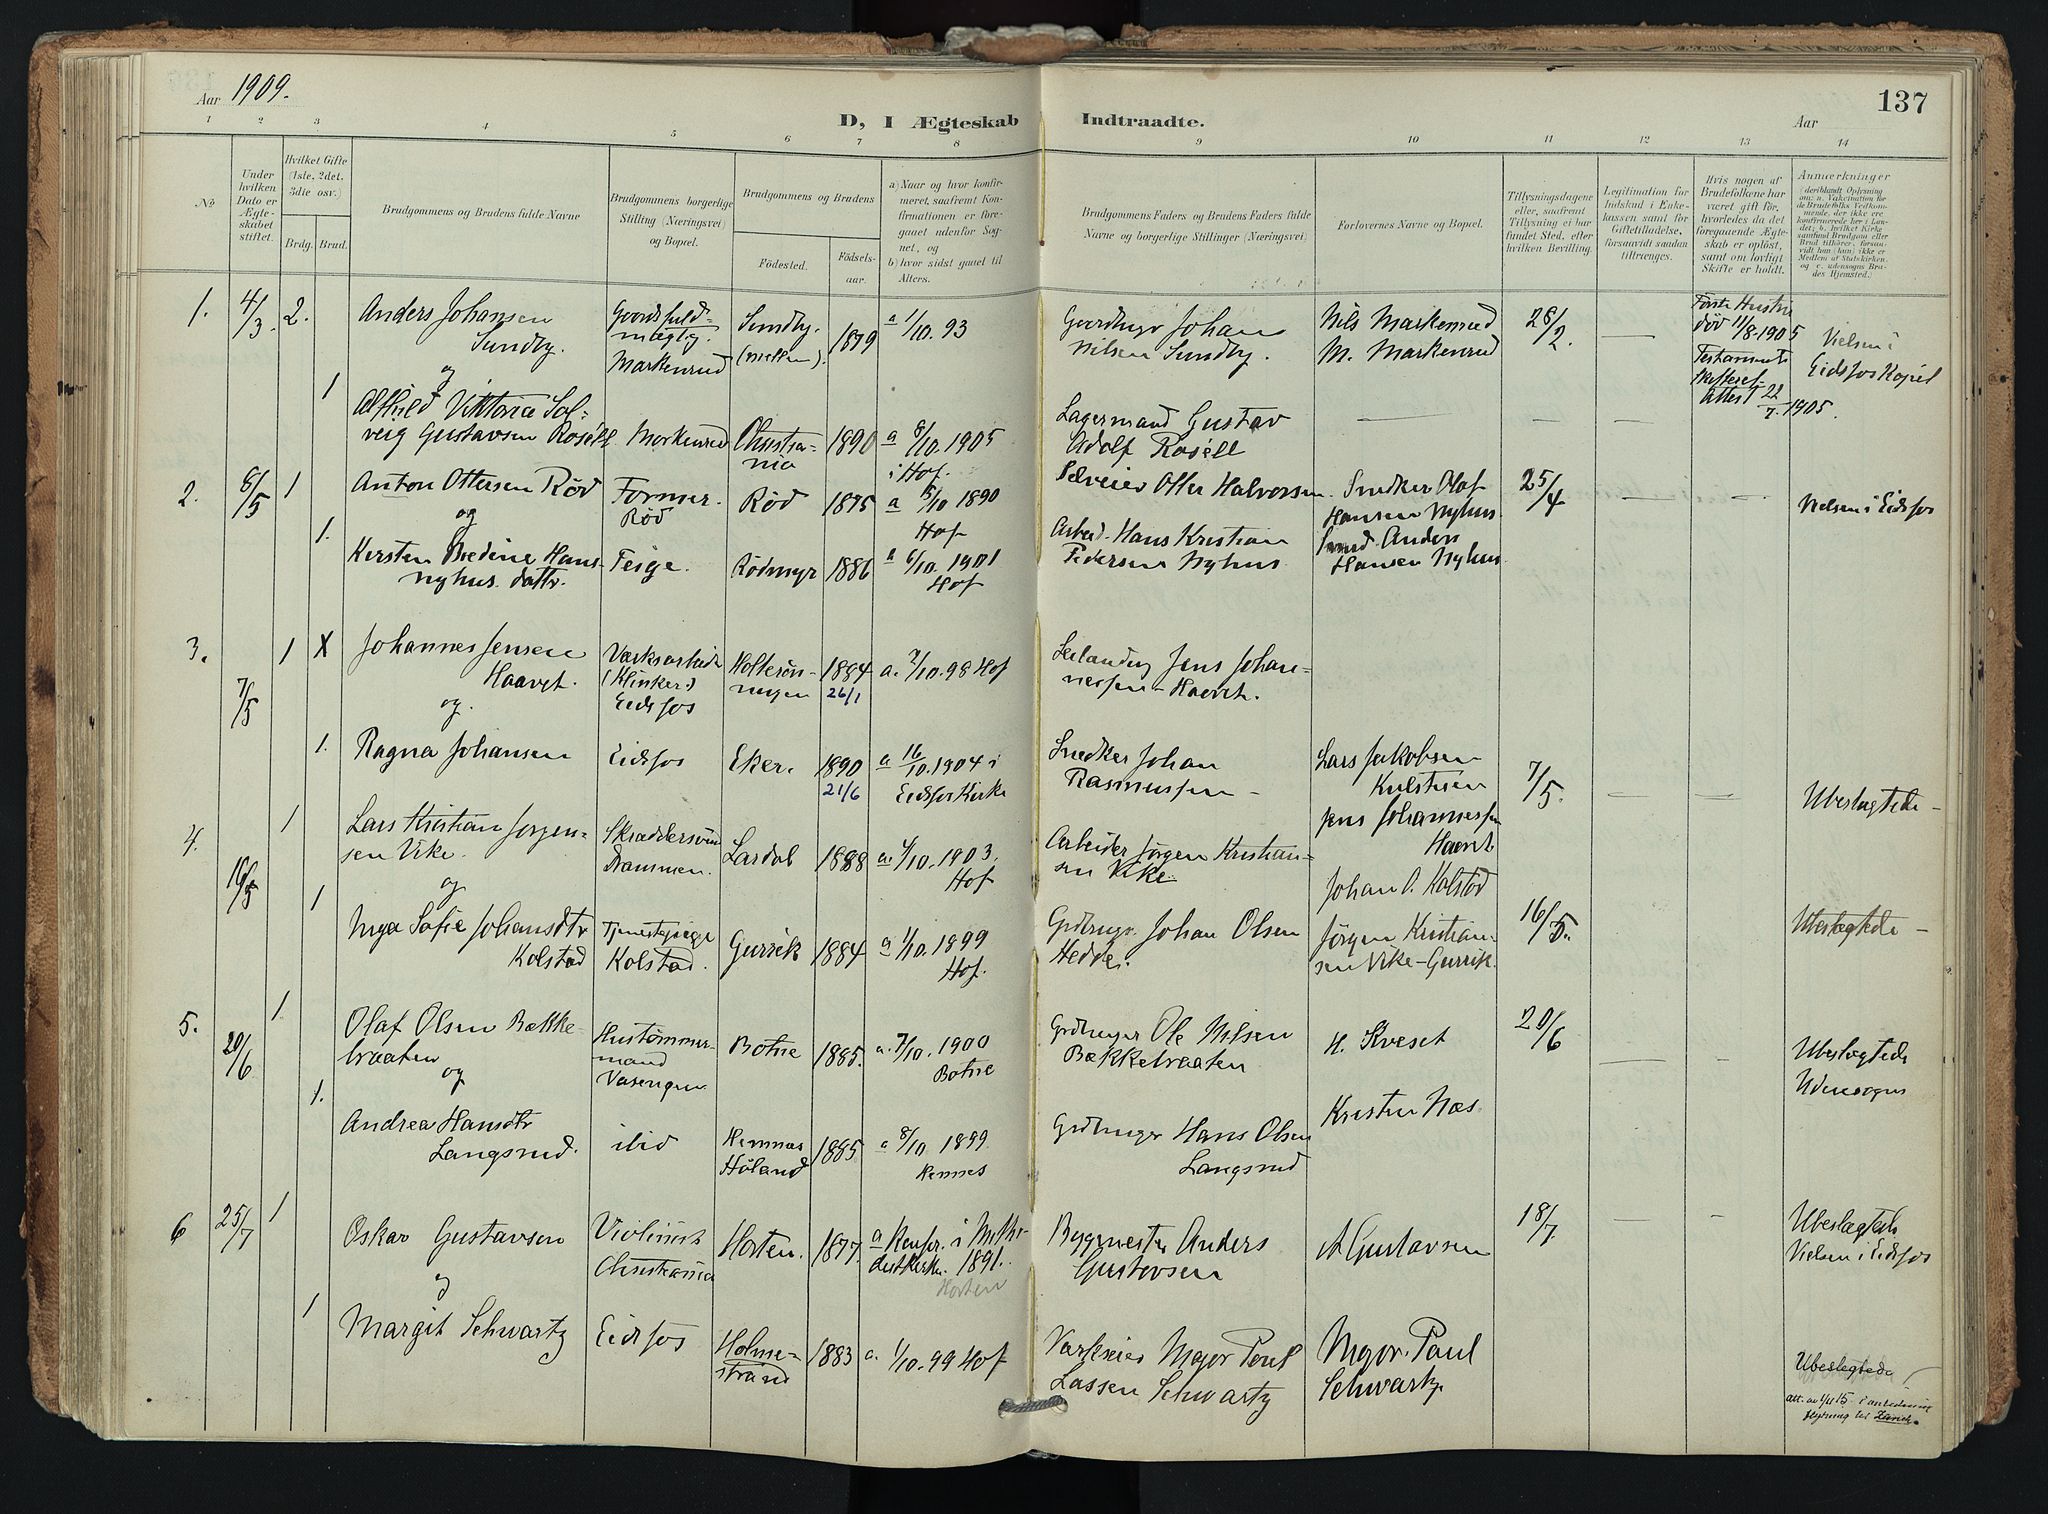 Aar 1909.
D, I Ægteskab Indtraadte.
Aar
137
1 2 3 4 5 6 7 8 9 10 11 12 13 14
No
Under hvilken Dato er Ægteskabet stiftet.
Hvilket Gifte (1ste, 2det, 3die osv.)
Brdg. Brud.
Brudgommens og Brudens fulde Navne
Brudgommens borgerlige Stilling (Næringsvei) og Bopæl.
Brudgommens og Brudens
Fødested.
Fødselsaar.
a) Naar og hvor konfirmeret, saafremt Konfirmationen er foregaaet udenfor Sognet, og
b) hvor sidst gaaet til Alters.
Brudgommens Faders og Brudens Faders fulde Navne og borgerlige Stillinger (Næringsvei)
Forlovernes Navne og Bopæl.
Tillysningsdagene eller, saafremt Tillysning ei har fundet Sted, efter hvilken Bevilling.
Legitimation for Indskud i Enkekassen samt for Giftetilladelse, forsaavidt saadan tiltrænges.
Hvis nogen af Brudefolkene har været gift før, hvorledes da det foregaaende Ægteskab er opløst, samt om lovligt Skifte er holdt.
Anmerkninger
1. 4/3. 2.
Anders Johansen
Sundby.
og
Markenrud
Sundby.
1879
a 1/10. 93
Johan
Nilsen Sundby.
Nils Markenrud
M. Markenrud
28/2.
Første Hustru
død 11/8 1905
Attest 22/7. 1905.
Nielsen i
Eidsfos Kapel
1
Alfhild Viktoria Sol-
veig Gustavsen Roséll
Markenrud
Christia-
nia
1890
a 8/10. 1905
i Hof.
Lagermand Gustav
Adolf Roséll
2. 8/5 1
Anton Ottersen Rød
og
Former.
Rød
Rød
1875
a 5/10 1890
Hof
Otter Halvorsen.
Snedker Olaf
Hansen Nyhus.
25/4
Nielsen i Eidsfos
1.
Kirsten Bredine Hans-
nyhus. dattr.
Teige.
Rødmyr
1886
a 6/10. 1901
Hof
Arbeid. Hans Kristian
Pedersen Nyhus
Anders
Hansen Nyhus.
3. 7/5 1 X
Johannes Jensen
Haavet.
og.
Værksarbeider
(Klinker)
Eidsfos
1884
26/1
a. 2/10. 98 Hof
Jens Johan-
nessen - Haavet.
1.
Ragna Johansen
Eidsfos
Eker.
1890
21/6
a 16/10. 1904 i
Eidsfos Kirke
Snedker Johan
Rasmussen -
Lars Jakobsen
Jens Johannessen
Haavet
7/5.
Ubeslægtede -
4. 16/5 1
Lars Kristian Jørgen-
sen Vike.
og
Skræddersvend
Drammen.
Lardal
1888
a. 4/10. 1903.
Hof
Arbeider Jørgen Kristian-
sen Vike
Johan O. Kolstad
16/5.
1
Inga Sofie Johansdtr
Kolstad
Tjenestepige
Kolstad.
Gursrik
1884
a 1/10. 1899
Hof.
Grdbruger. Johan Olsen
Hedde.
Jørgen Kristian-
sen Vike-
Ubeslægtede -
5. 20/6 1
Olaf Olsen Bække-
braaten
og
Hustømmer-
mand
Vasengen
Botne
1885.
a. 7/10. 1900
Botne
Grdbruger Ole Nilsen
Bækkebraaten
H. Kveset
20/6
Ubeslægtede
Udensogns
1.
Andrea Hansdtr
Langsrud.
ibid
Hemnes
Høland
1885
a 8/10 1899
Hemnes
Grdbruger Hans Olsen
Langsrud
Kristen Næs
6 25/7 1
Oskar Gustavsen
og
Violinist
Christiania
Horten.
1877.
a Konfr. i Metho-
distkirken 1891.
Horten
Bygmester Anders
Gustavsen
A Gustavsen
18/7.
Ubeslægtede
Nielsen i Eidsfos
1
Margit Schwartz
Eidsfos
Holme-
strand
1883
a. 1/10. 99 Hof
Værkseier Major Poul
Lassen Schwartz
Major. Paul
Schwartz.
Ubeslægtede